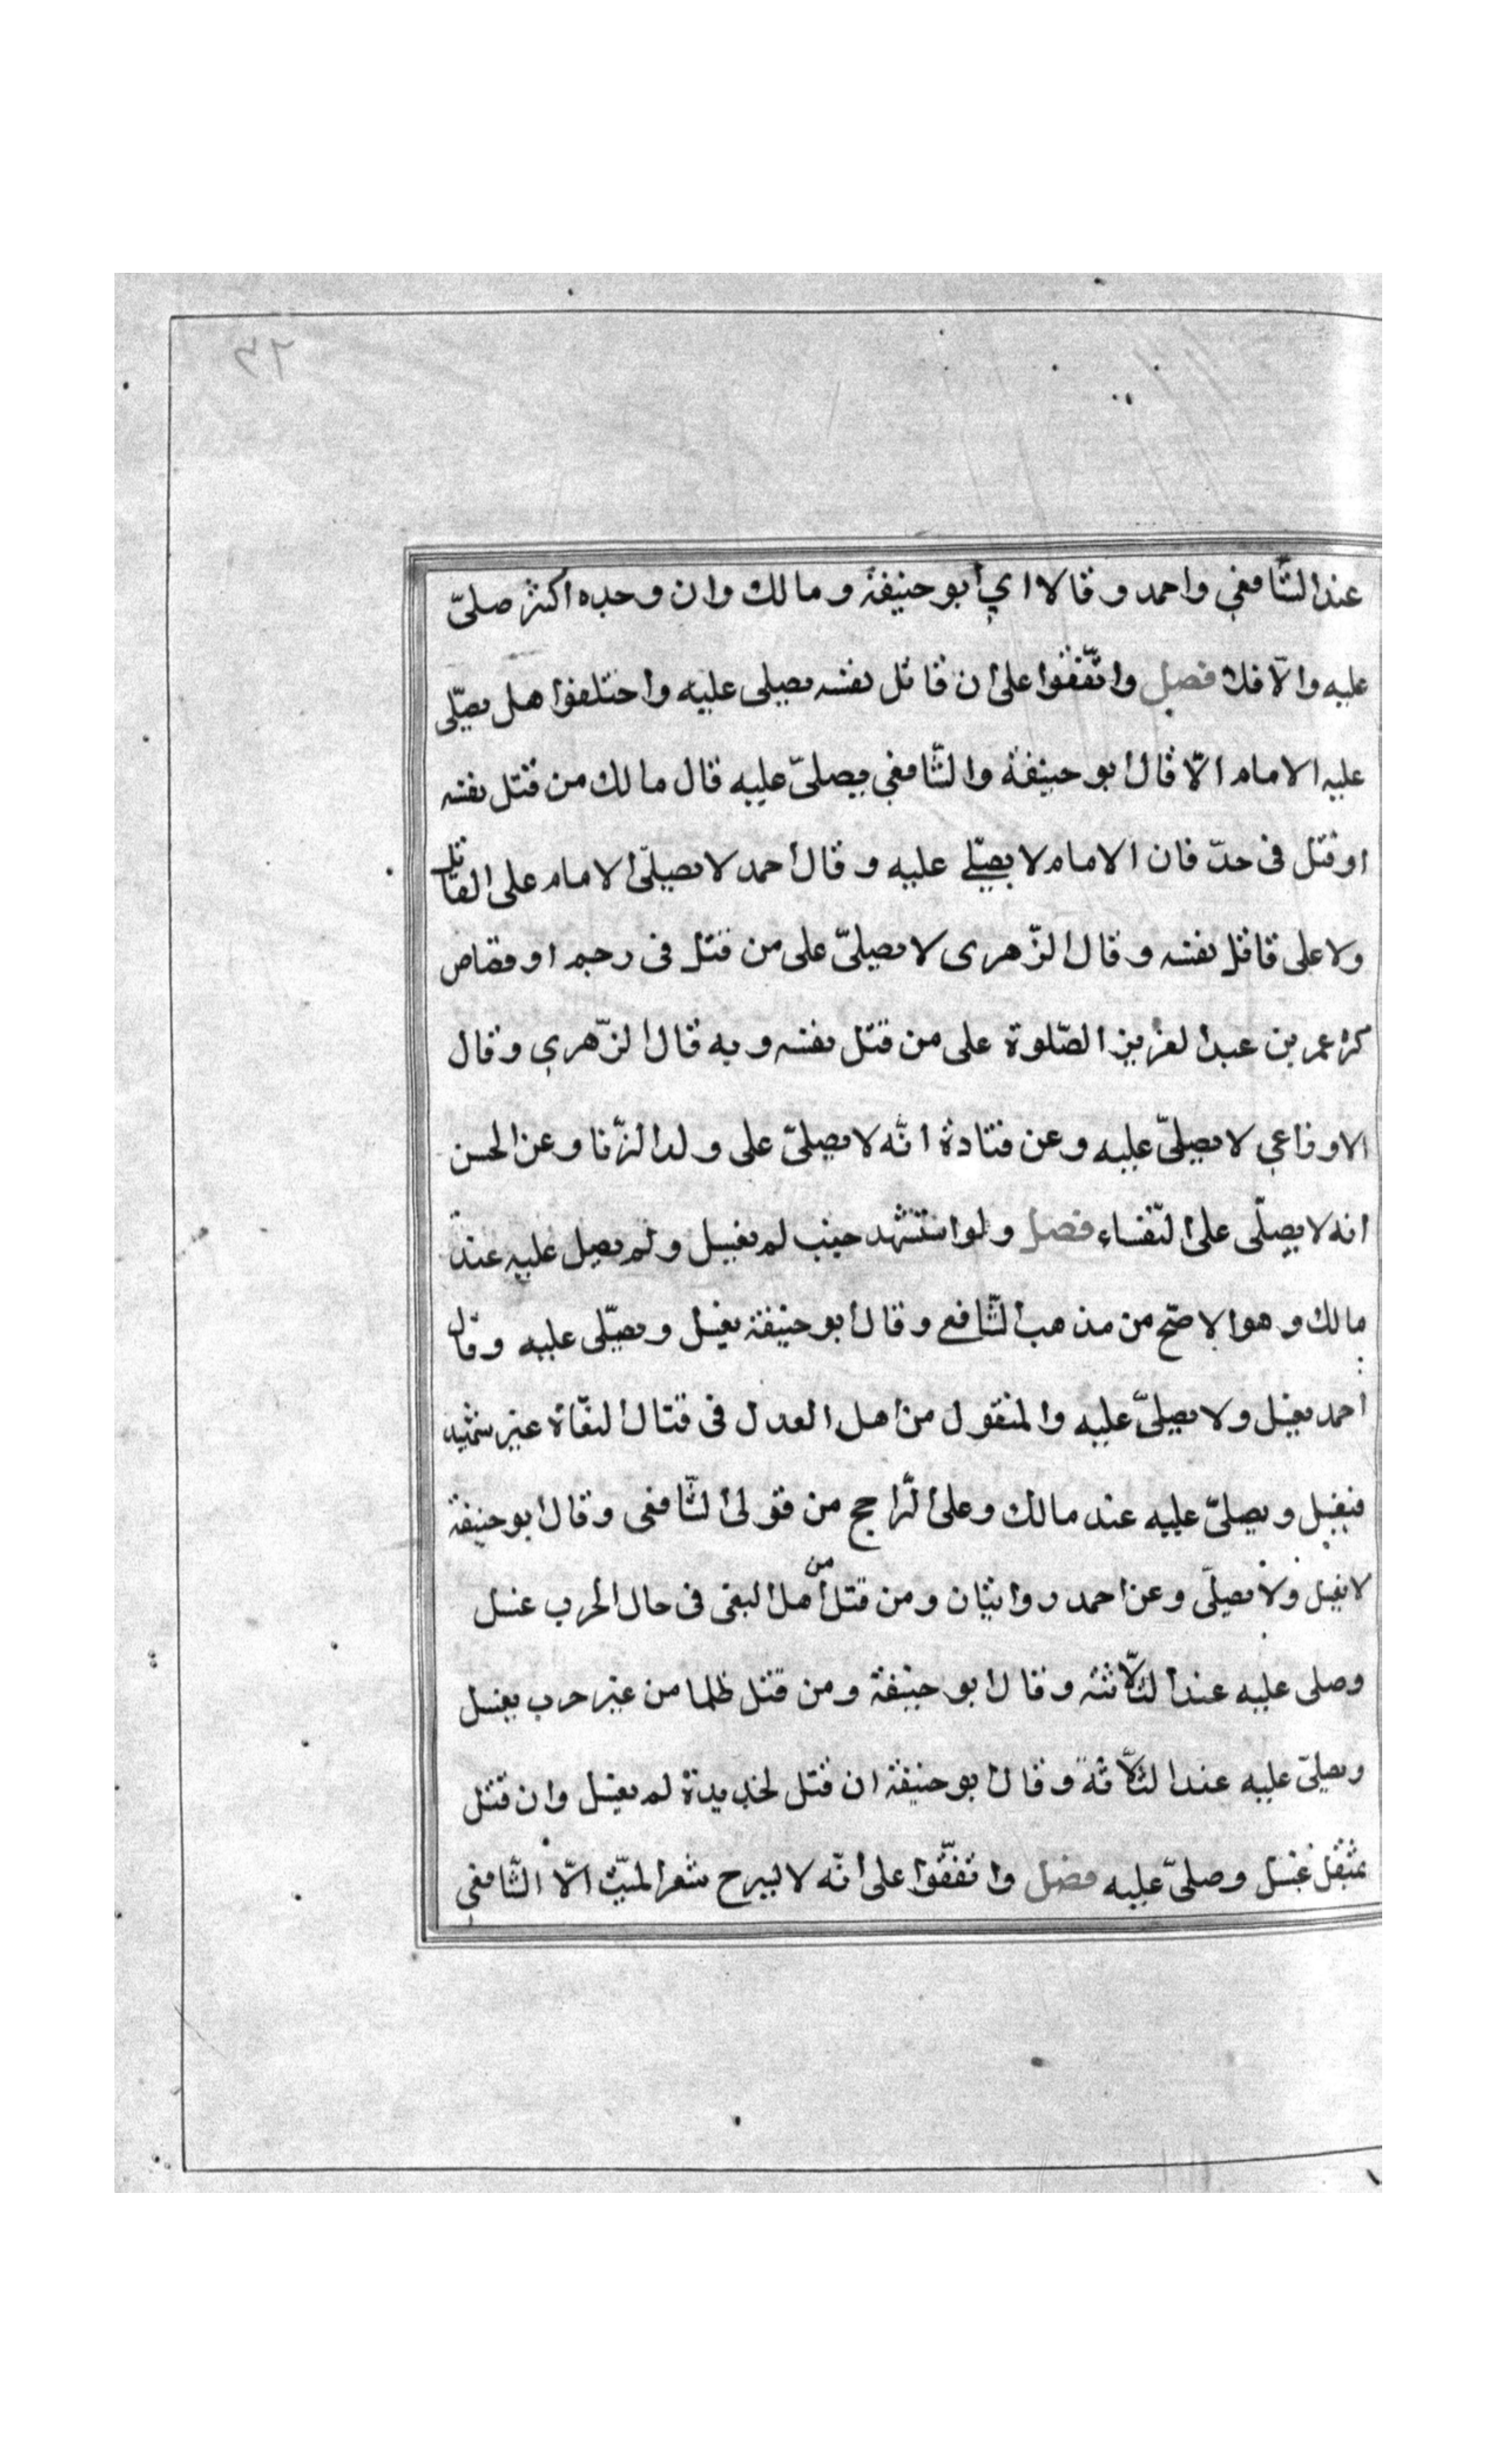 عند الشّافعي واحمد وقالا اي أبو حنيفة ومالك وان وجده اكثر صلىّ
عليه والاّ فلا فصل واتّفقوا على ان قاتل نفسه يصلى عليه واختلفوا هل يصلّى
عليه الامام الاّ قال ابو حنيفة والشّافعي يصلىّ عليه قال مالك من قتل نفسه
او قتل فى حدّ فان الامام لا يصلّے عليه وقال احمد لا يصلىّ الامام على القاتل
ولا على قاتل نفسه وقال الزّهرى لا يصلىّ على من قتل فى رجم او قصاص
كره عمر بن عبد العزيز الصّلوة على من قتل نفسه وبه قال الزّهري وقال
الاوزاعي لا يصلىّ عليه وعن قتادة انّه لا يصلىّ على ولد الزّنا وعن الحسن
انه لا يصلّى على النّفساء فصل ولو استشهد جنب لم يغسل ولم يصل عليه عند
مالك وهو الاصحّ من مذهب الشّافعے وقال ابو حنيفة يغسل ويصلّى عليه وقال
احمد يغسل ولا يصلىّ عليه والمنقول من اهل العدل فى قتال البغاة غير شهيد
فيغسل ويصلىّ عليه عند مالك وعلى الرّاجح من قولى الشّافعى وقال ابو حنيفة
لا يغسل ولا يصلىّ وعن احمد روايتان ومن قتل من أهل البغى فى حال الحرب غسل
وصلى عليه عند الثّلاثة وقال ابو حنيفة ومن قتل ظلما من غير حرب يغسل
ويصلىّ عليه عند الثّلاثة وقال ابو حنيفة ان قتل بحديدة لم يغسل وان قتل
بمثقل غسل وصلىّ عليه فصل واتفقّوا على انّه لا يسرح شعر الميّت الاّ الشّافعي